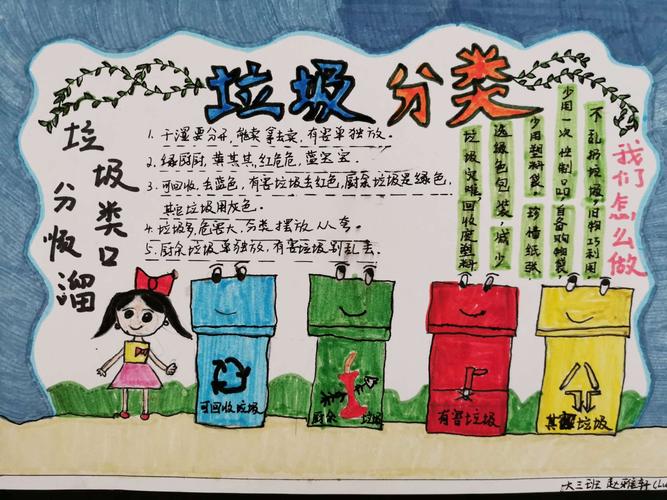 垃圾分类
垃圾类口
分顺溜
1. 干湿要分开，能卖拿去卖，有害单独放。
2. 绿厨厨，黄其其，红危危，蓝宝宝。
3. 可回收，去蓝色，有害垃圾去红色，厨余垃圾是绿色，
其它垃圾用灰色。
4. 垃圾多，危害大，分类摆放人人夸。
5. 厨余垃圾单独放，有害垃圾别乱丢。
我们怎么做
不乱扔垃圾，旧物巧利用
少用一次性制品，自备购物袋
少用塑料袋 珍惜纸张
选绿色包装，减少
垃圾灾难，回收废塑料
可回收垃圾
厨余 垃圾
有害垃圾
其它垃圾
大三班 赵雅轩